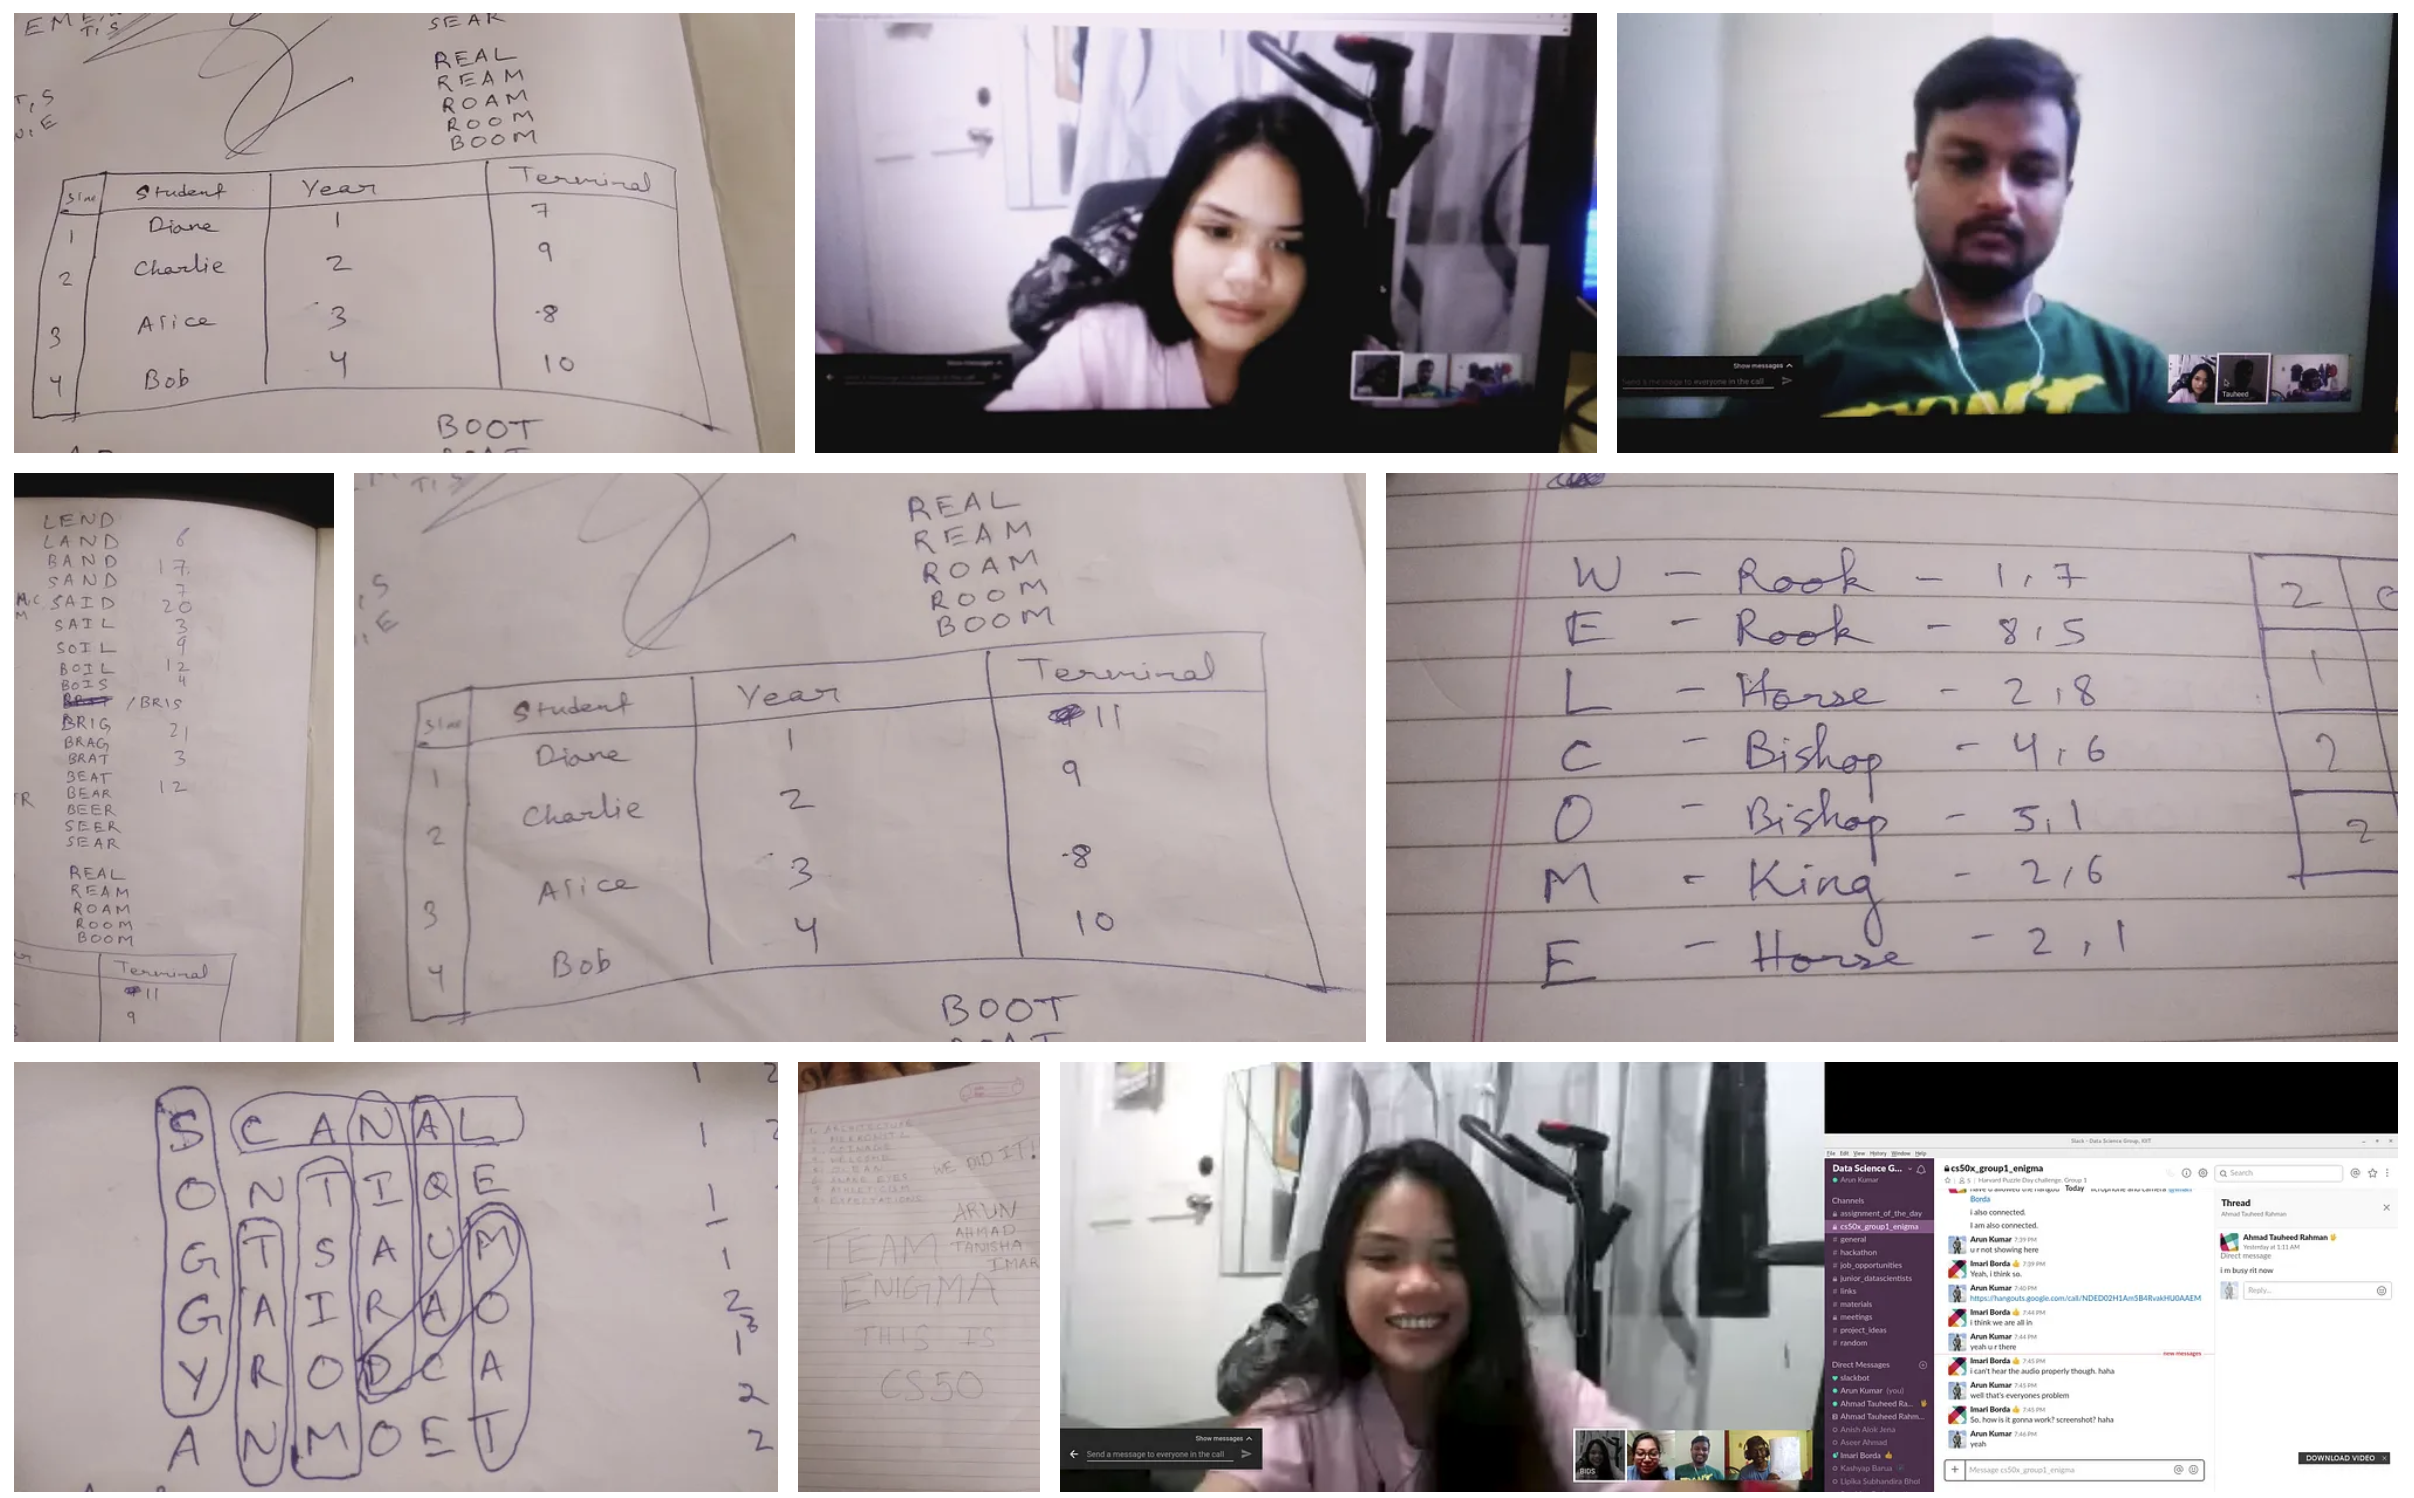 SEAR
REAL
REAM
ROAM
ROOM
BOOM
Student Year Terminal
1 Diane 1 7
2 Charlie 2 9
3 Alice 3 8
4 Bob 4 10
BOOT
Show messages
Show messages
Send a message to everyone in the call
Tauheed
LEND
LAND 6
BAND 17
SAND 7
SAID 20
SAIL 3
SOIL 9
BOIL 12
BOIS 4
/BRIS
BRIG 21
BRAG
BRAT 3
BEAT
BEAR 12
BEER
SEER
SEAR
REAL
REAM
ROAM
ROOM
BOOM
Terminal
11
9
REAL
REAM
ROAM
ROOM
BOOM
Student Year Terminal
1 Diane 1 11
2 Charlie 2 9
3 Alice 3 8
4 Bob 4 10
BOOT
W - Rook - 1,7
E - Rook - 8,5
L - Horse - 2,8
C - Bishop - 4,6
O - Bishop - 5,1
M - King - 2,6
E - Horse - 2,1
2
1
2
2
S C A N A L
O N T I Q E
G T S A U M
G A I R A O
Y R O D C A
A N M O E T
WE DID IT!
ARUN
AHMAD
TANISHA
IMAR
TEAM
ENIGMA
THIS IS
CS50
Show messages
Send a message to everyone in the call
BIDS
Slack - Data Science Group, KIIT
File Edit View History Window Help
Data Science G...
Arun Kumar
Channels
assignment_of_the_day
cs50x_group1_enigma
general
hackathon
job_opportunities
junior_datascientists
links
materials
meetings
project_ideas
random
Direct Messages
slackbot
Arun Kumar (you)
Ahmad Tauheed Ra...
Ahmad Tauheed Rahm...
Anish Alok Jena
Aseer Ahmad
Imari Borda
Kashyap Barua
Lipika Subhandira Bhol
cs50x_group1_enigma
5 | Harvard Puzzle Day challenge, Group 1
Search
Today
Borda
i also connected.
I am also connected.
Arun Kumar 7:39 PM
u r not showing here
Imari Borda 7:39 PM
Yeah, i think so.
Arun Kumar 7:40 PM
Imari Borda 7:44 PM
i think we are all in
Arun Kumar 7:44 PM
yeah u r there
new messages
Imari Borda 7:45 PM
i can't hear the audio properly though. haha
Arun Kumar 7:45 PM
well that's everyones problem
Imari Borda 7:45 PM
So, how is it gonna work? screenshot? haha
Arun Kumar 7:46 PM
yeah
Message cs50x_group1_enigma
Thread
Ahmad Tauheed Rahman
Ahmad Tauheed Rahman
Yesterday at 1:11 AM
Direct message
i m busy rit now
Reply...
DOWNLOAD VIDEO